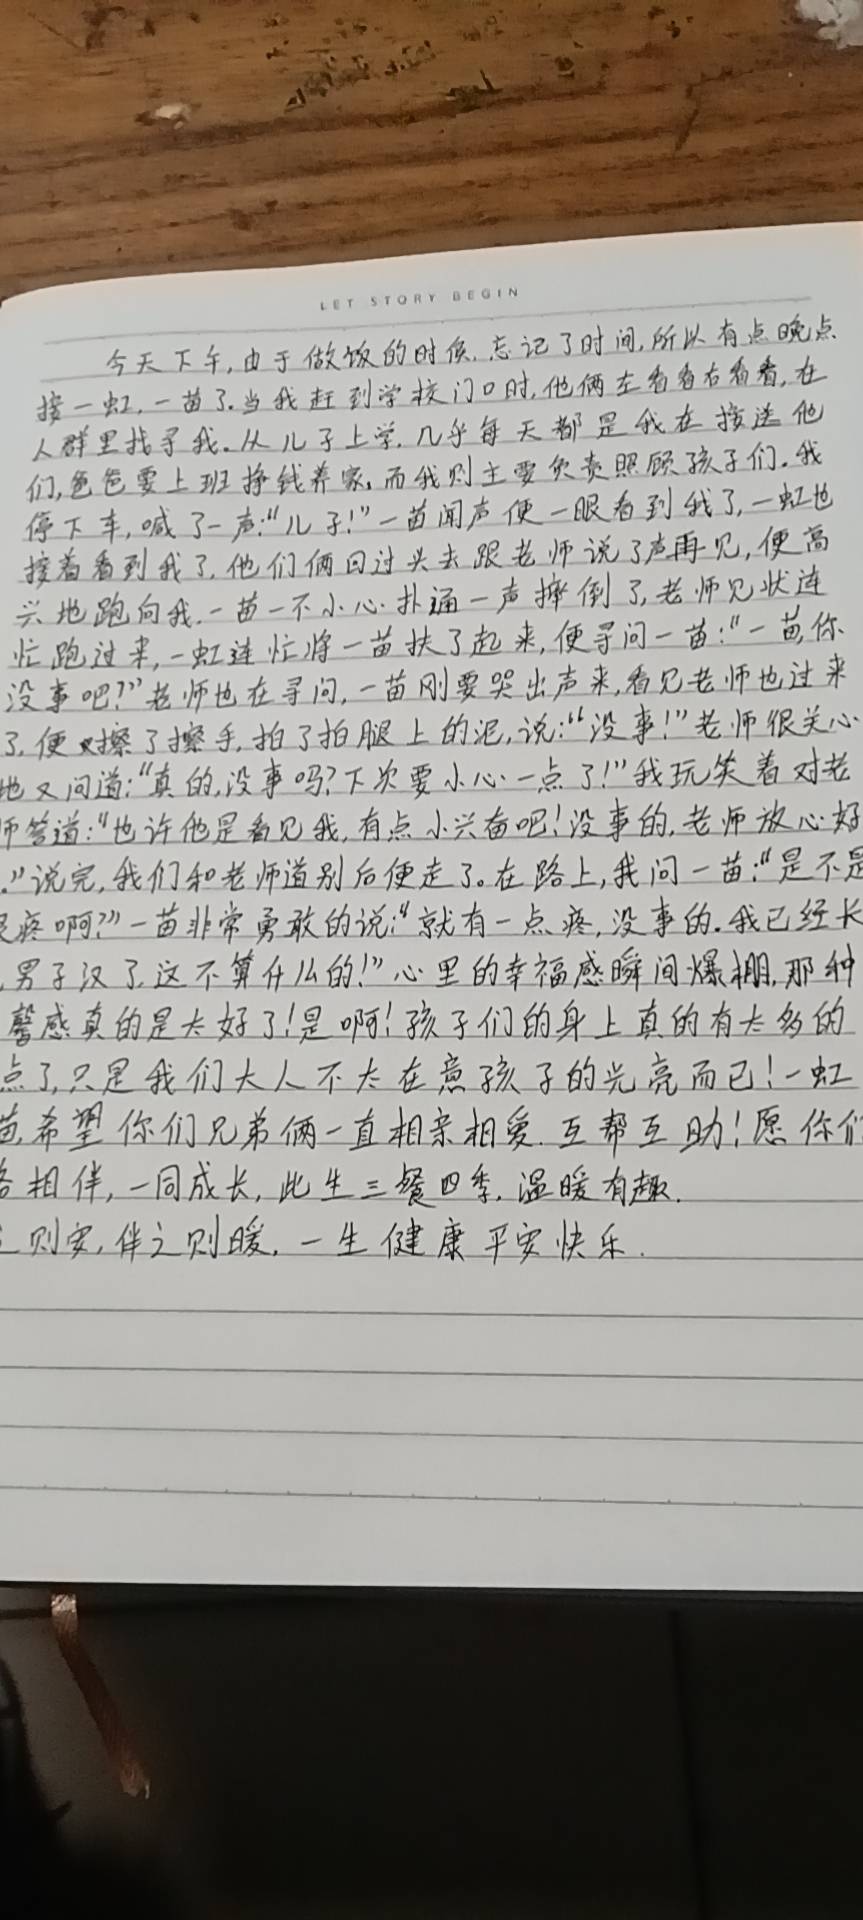 LET STORY BEGIN
今天下午,由于做饭的时候,忘记了时间,所以有点晚点
接一虹,一苗了.当我赶到学校门口时,他俩左看看右看看,在
人群里找寻我.从儿子上学,几乎每天都是我在接送他
们,爸爸要上班挣钱养家,而我则主要负责照顾孩子们.我
停下车,喊了一声:“儿子!”一苗闻声便一眼看到我了,一虹也
接着看到我了.他们俩回过头去跟老师说了声再见,便高
兴地跑向我.一苗一不小心扑通一声摔倒了,老师见状连
忙跑过来,一虹连忙将一苗扶了起来,便寻问一苗:“一苗,你
没事吧?”老师也在寻问,一苗刚要哭出声来,看见老师也过来
了,便擦了擦手,拍了拍腿上的泥,说:“没事!”老师很关心
地又问道:“真的,没事吗?下次要小心一点了!”我玩笑着对老
师答道:“也许他是看见我,有点小兴奋吧!没事的,老师放心好
.”说完,我们和老师道别后便走了。在路上,我问一苗:“是不是
疼啊?”一苗非常勇敢的说:“就有一点疼,没事的.我已经长
,男子汉了,这不算什么的!”心里的幸福感瞬间爆棚,那种
馨感真的是太好了!是啊!孩子们的身上真的有太多的
点了,只是我们大人不太在意孩子的光亮而已!一虹
苗,希望你们兄弟俩一直相亲相爱.互帮互助!愿你们
相伴,一同成长,此生三餐四季,温暖有趣.
则安,伴之则暖,一生健康平安快乐.